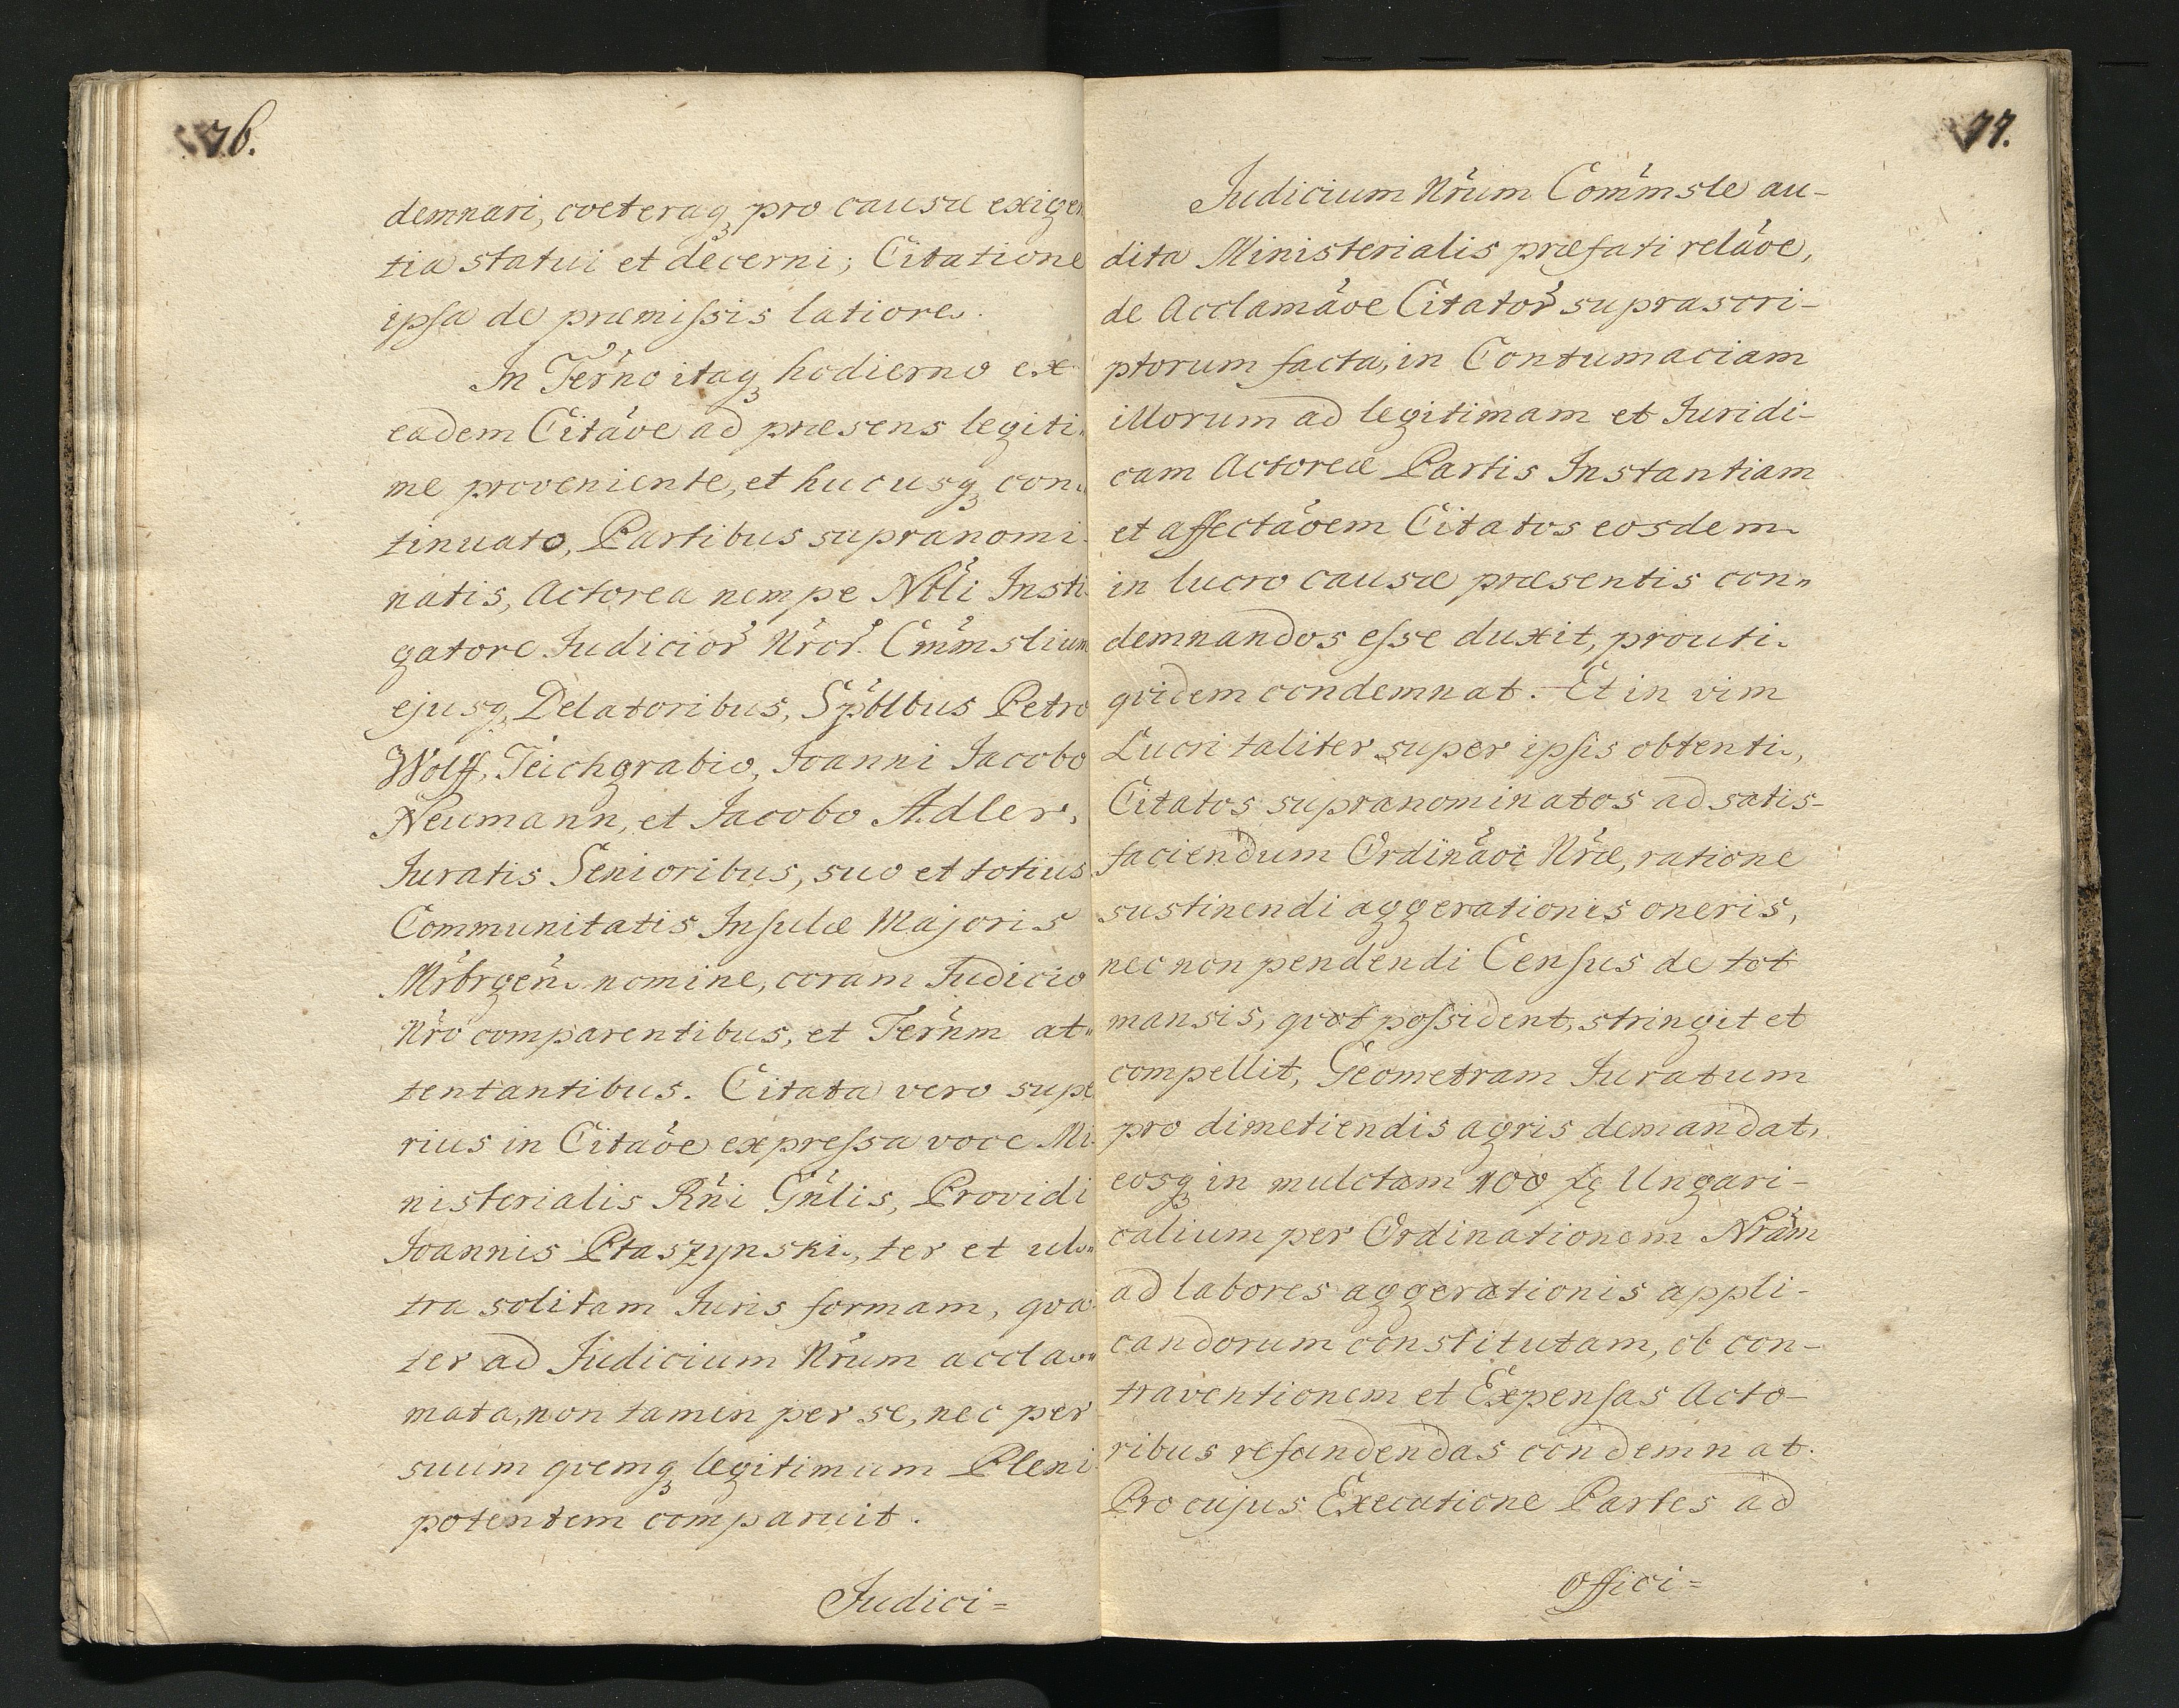 76.
demnari, coeteraq₃ pro causæ exigen
tia statui et decerni; Citatione
ipsa de præmissis latiore.
In Terno itaq₃ hodierno ex
eadem Citaõe ad præsens legiti„
me proveniente, et hucusq₃ con„
tinuato, Partibus supranomi-
natis, Actorea nempe Nbli Insti-
gatore Judicior Nror. Cmmslium
ejusq₃ Delatoribus, Spblbus Petro
Wolff, Teichgrabio, Joanni Jacobo
Neumann, et Jacobo Adler,
Juratis Senioribus, suo et totius
Communitatis Insulæ Majoris
Mrbrgen. nomine, coram Judicio
Nro comparentibus, et Ternm at„
tentantibus. Citata vero supe
rius in Citaõe expressa voce Mi-
nisterialis Rni Gnlis, Providi
Joannis Ptaszynski, ter et ul„
tra solitam Juris formam, qva-
ter ad Judicium Nrum accla„
mata, non tamen per se, nec per
suum qvemq₃ legitimum Pleni-
potentem comparuit.
Judici=
77.
Judicium Nrum Commsle au-
dita Ministerialis præfati relaõe,
de Acclamaõe Citator suprascri-
ptorum facta, in Contumaciam
illorum ad legitimam et Juridi-
cam Actoreæ Partis Instantiam
et affectaõem Citatos eosdem
in lucro causæ præsentis con„
demnandos esse duxit, prouti
qvidem condemnat. Et in vim
Lucri taliter super ipsis obtenti,
Citatos supranominatos ad satis-
faciendum Ordinaõi Nræ, ratione
sustinendi aggerationis oneris,
nec non pendendi Census de tot
mansis, qvot possident, stringit et
compellit, Geometram Juratum
pro dimetiendis agris demandat,
eosq₃ in mulctam 100 Ungari-
calium per Ordinationem Nram
ad labores aggerationis appli-
candorum constitutam, ob con-
traventionem et Expensas Acto-
ribus refundendas condemnat.
Pro cujus Executione Partes ad
Offici=